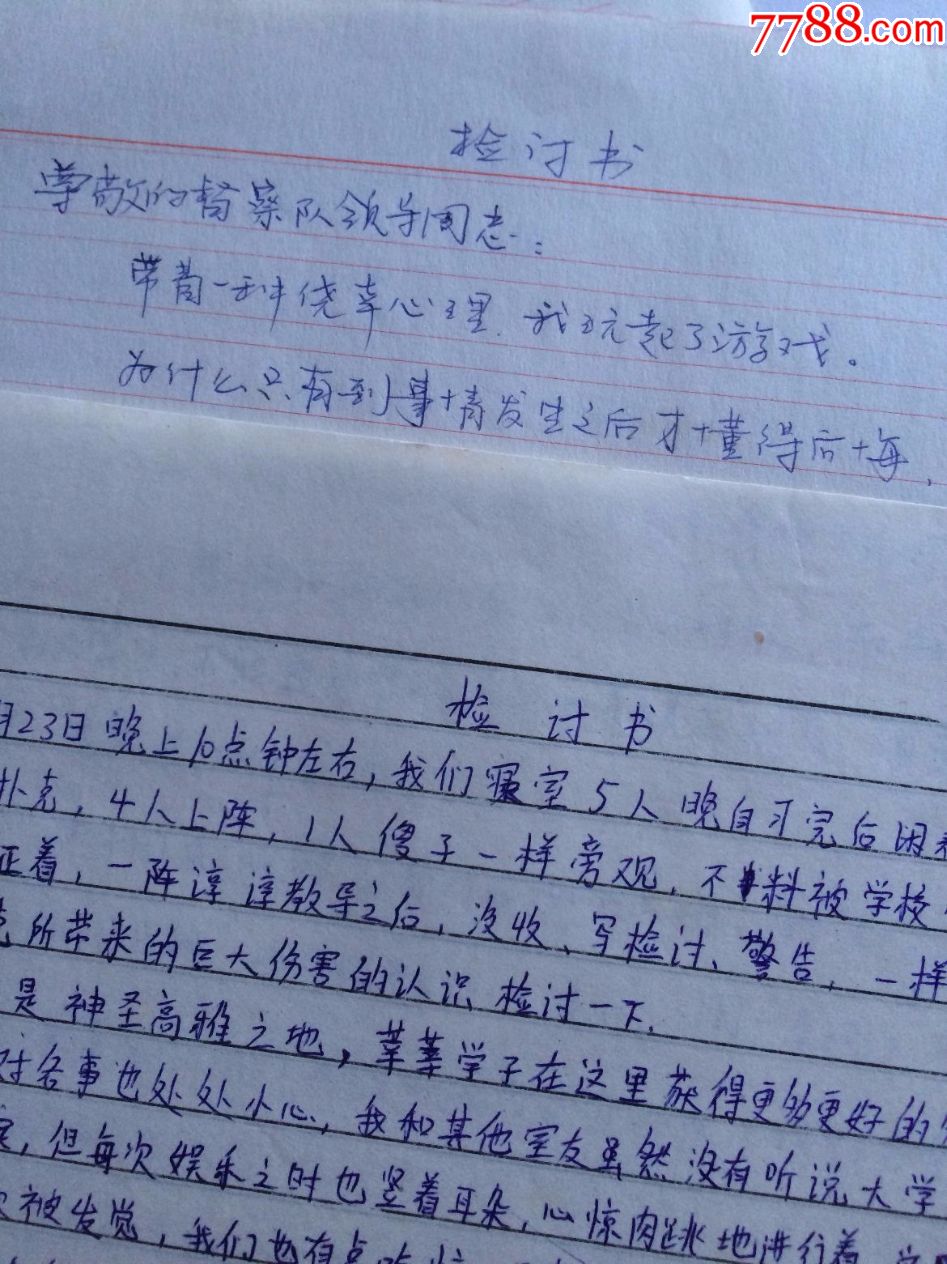 7788.com
检讨书
尊敬的督察队领导同志:
带着一种侥幸心理,我玩起了游戏。
为什么只有到事情发生之后才懂得后悔,
检讨书
月23日晚上10点钟左右,我们寝室5人晚自习完后困
扑克,4人上阵,1人傻子一样旁观,不料被学校
正着,一阵谆谆教导之后,没收、写检讨、警告,一样
所带来的巨大伤害的认识 检讨一下.
是神圣高雅之地,莘莘学子在这里获得更多更好的
对各事也处处小心,我和其他室友虽然没有听说大学
但每次娱乐之时也竖着耳朵,心惊肉跳地进行着
被发觉,我们也有点